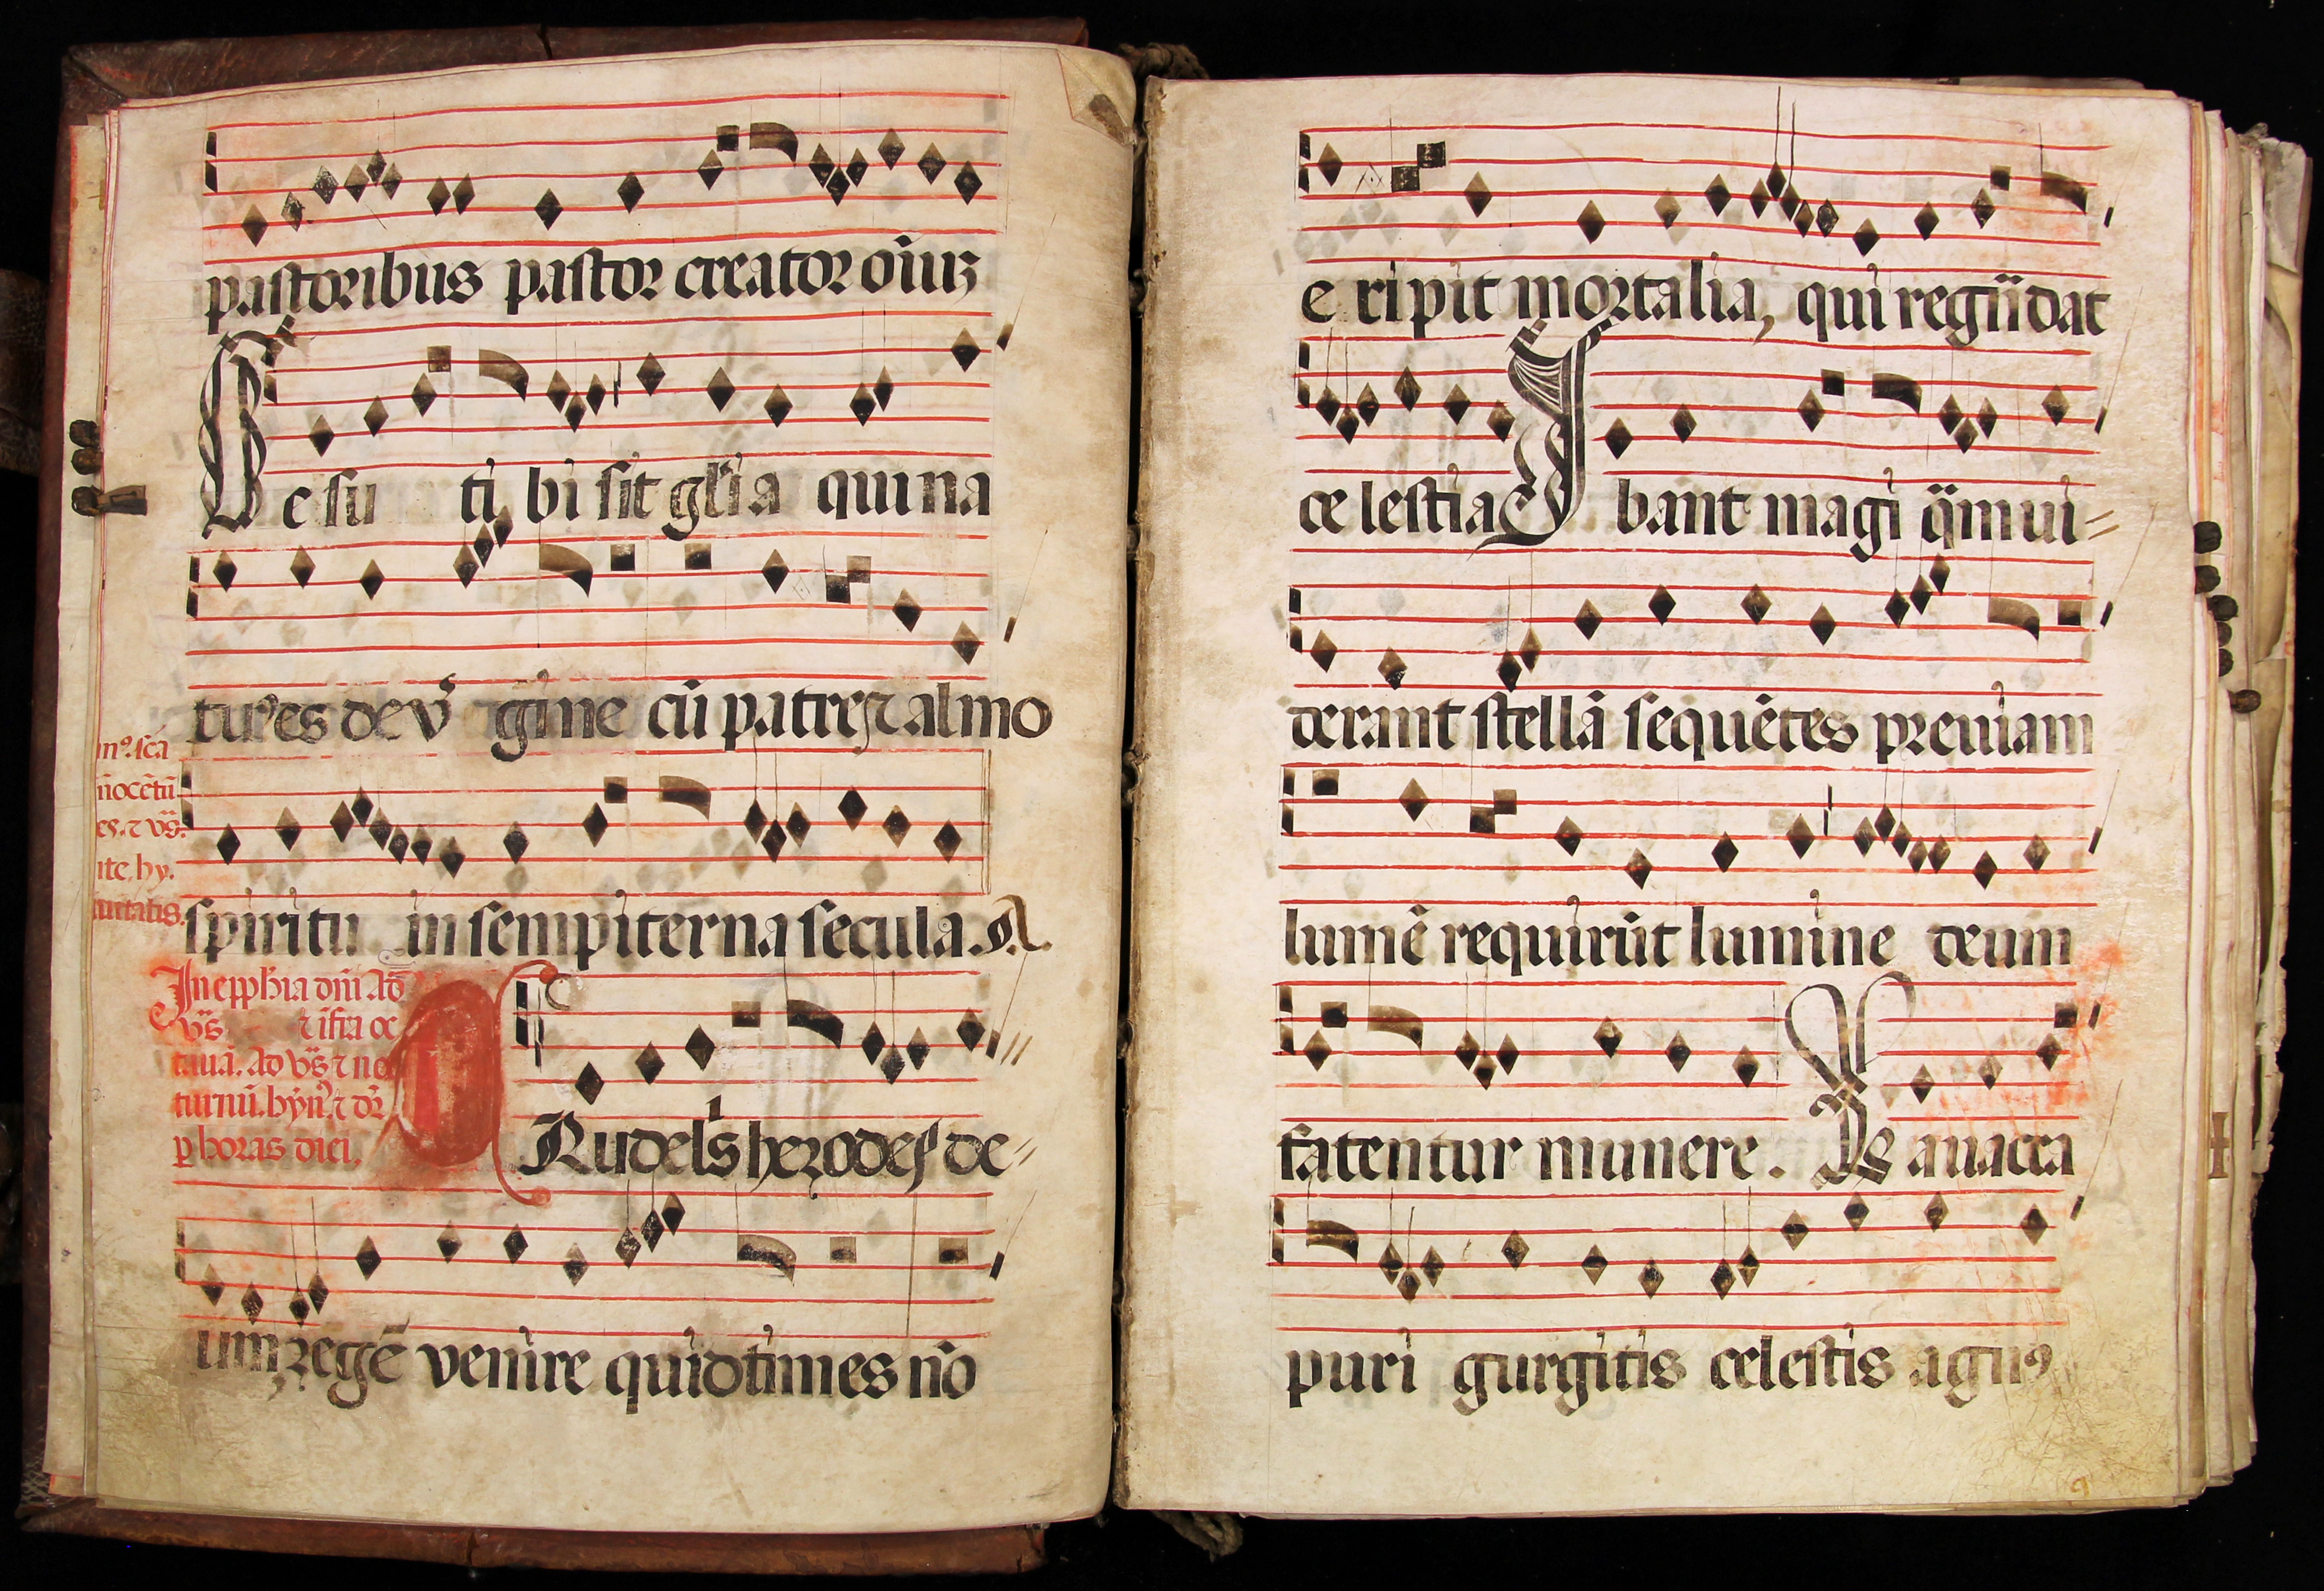 pastoribus pastor creator oīuʒ
Iesu tibi sit glīa qui na
tus es de v̄gine cū patre ⁊ almo
spiritu in sempiterna secula. A.
nocētū
In epphīa dni Ad
vs̄ ⁊ ifra oc
tauā. Ad vs̄ ⁊ noc
turnū. hyn̄. ⁊ dr̄
ꝑ horas diei.
CRudelis herodes de=
um regē venire quid times nō
eripit mortalia, qui regū dat
celestia Ibant magi qm̄ ui=
derant stellā sequētes preuiam
lumē requirūt lumine deum
fatentur munere. Lauacra
puri gurgitis celestis agnꝰ